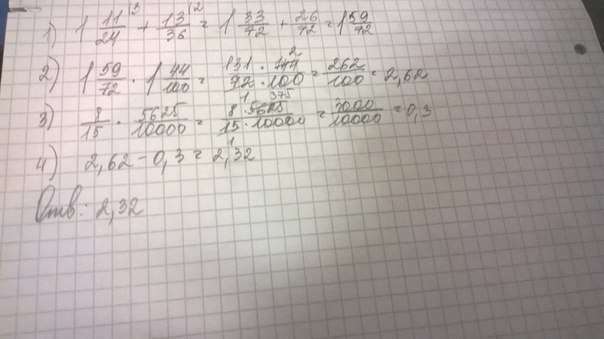 1) 1 11/24 + 13/36 = 1 33/72 + 26/72 = 1 59/72
2) 1 59/72 · 1 44/100 = 131 · 144 2 / 72 · 100 1 = 262/100 = 2,62
3) 8/15 · 5625/10000 = 8 · 5625 375 / 15 · 10000 1 = 3000/10000 = 0,3
4) 2,62 - 0,3 = 2,32
Отв: 2,32